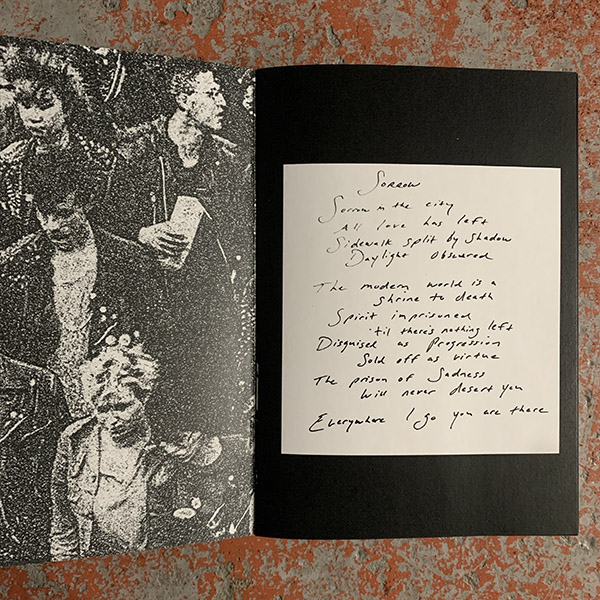 Sorrow
Sorrow in the city
All love has left
Sidewalk split by shadow
Daylight obscured
The modern world is a
shrine to death
Spirit imprisoned
'til there's nothing left
Disguised as Progression
Sold off as virtue
The prison of Sadness
will never desert you
Everywhere I go you are there